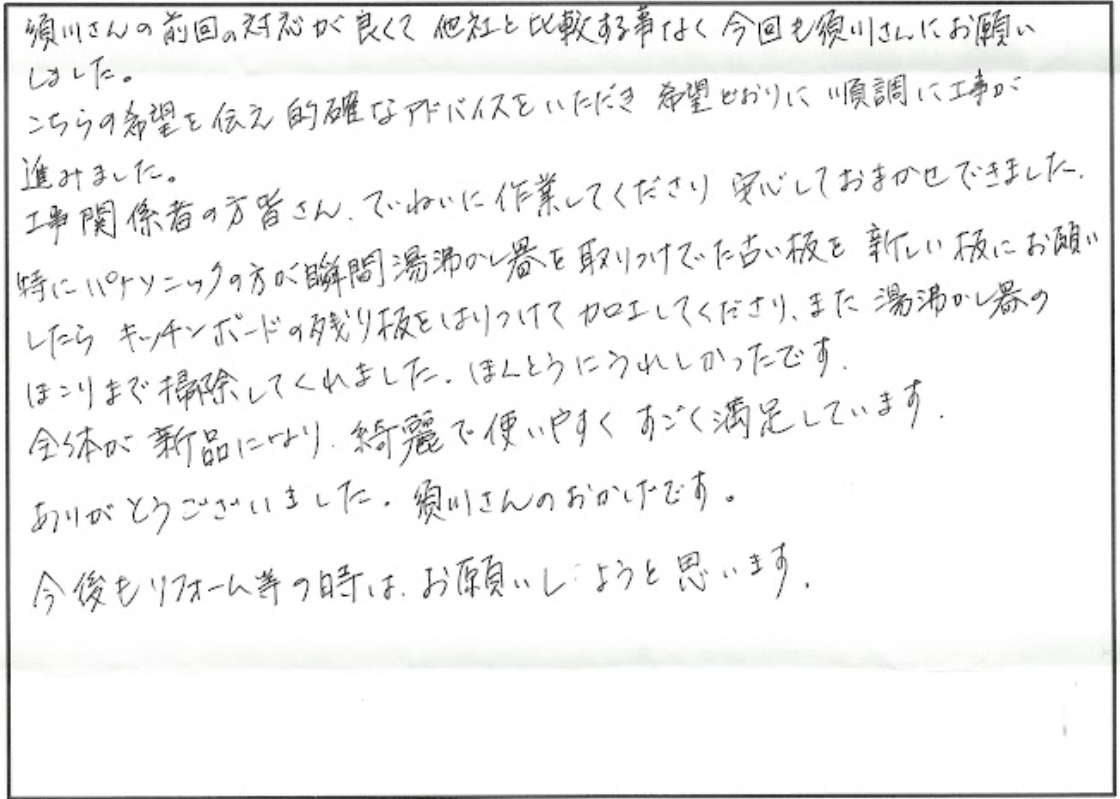 須川さんの前回の対応が良くて他社と比較する事なく今回も須川さんにお願い
しました。
こちらの希望を伝え的確なアドバイスをいただき希望どおりに順調に工事が
進みました。
工事関係者の方皆さん、ていねいに作業してくださり安心しておまかせできました。
特にパナソニックの方が瞬間湯沸かし器を取りつけてた古い板を新しい板にお願い
したらキッチンボードの残り板をはりつけて加工してくださり、また湯沸かし器の
ほこりまで掃除してくれました。ほんとうにうれしかったです。
全体が新品になり、綺麗で使いやすくすごく満足しています。
ありがとうございました。須川さんのおかげです。
今後もリフォーム等の時は、お願いしようと思います。